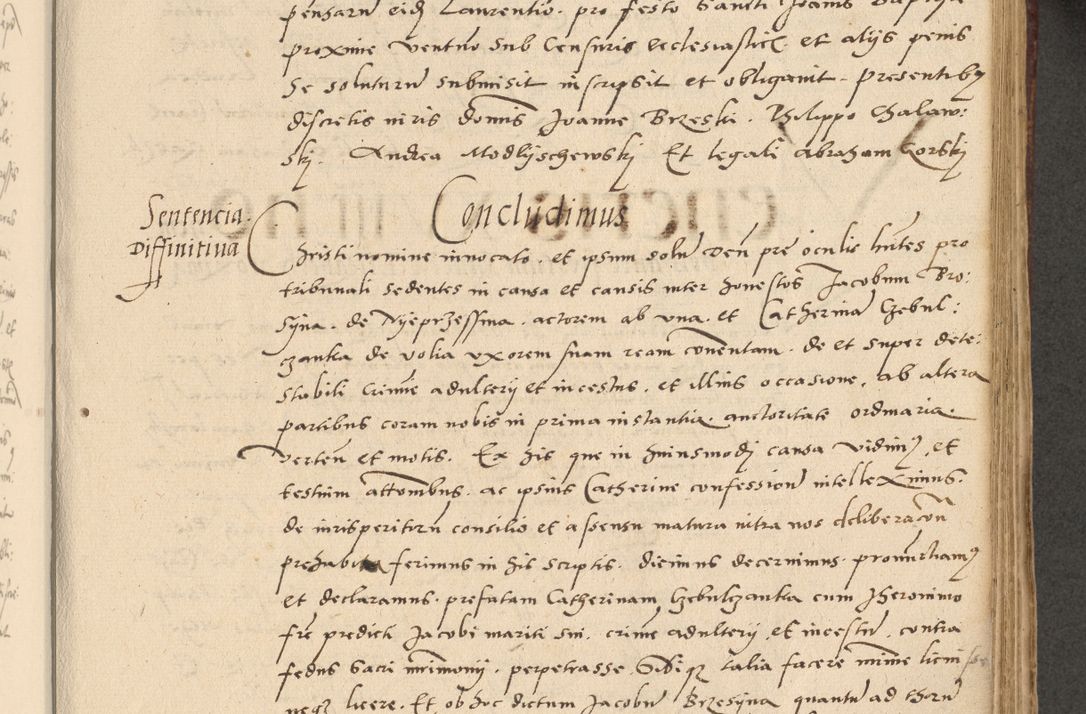 pensarum eidē Laurentio. pro festo Sancti Joānis Baptiste
proxime ventuō sub Censuris ecclesiasticis et alijs penis
se soluturū submisit inscripsit et obligauit. presentibq
discretis viris dominis Joanne Brzeski. Philippo Chalaw:
skj. Andrea Modlyschewskj Et legali abraham Gorskj
Concludimus
Sentencia.
Diffinitiua
Christi nomine inuocato. et ipsum solū Deū pre oculis hn̄tes pro
tribunali sedentes in causa et causis inter honestos Jacobum Bro:
syna. de Nyeprzessna. actorem ab vna. et Catherinā Czebul:
czanka de volia vxorem suam ream conuentam. de et super dete:
stabili Crimine adulterij et incestus. et illius occasione. ab altera
partibus coram nobis in prima instantia. auctoritate ordinaria.
verteñ et motis. Ex his que in huiusmodj causa vidimq, et
testium attoīnibus. ac ipsius Catherine confessionē intelleximus.
de iurisperitorū consilio et assensu matura intra nos deliberacōn
prehabita ferimus in his scriptis. dicimus decernimus. pronūctiamq
et declaramus. prefatam Catherinam Czebulczanka cum Jheronimo
frē predicti Jacobi mariti sui. crimē adulterij et incestū. contra
fedus sacri mr̄imonij. perpetrasse. Sibiq talia facere minime licuisse
neqz licere. Et ob hoc dictum Jacobū Brzesyna quantū ad thorū